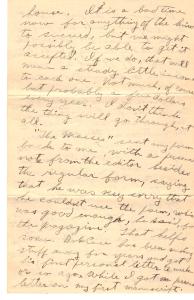 house. It is a bad time
now for anything of the kind
to succeed, but we might
possibly be able to get it
accepted. If we do, that will
mean a steady little income
to each one. Not much, of course,
but probably a few dollars
every year. I don't think
the thing will go through, at
all.
"The Masses" sent my poem
back to me with a personal
note from the editor besides
the regular form, saying
that he was very sorry that
he couldn't use the poem, which
was good enough, he said, for
the magazine. That helped
some. Bob
stuff for years and got
first personal letter
or so ago while I got an personal
letter on my first manuscript